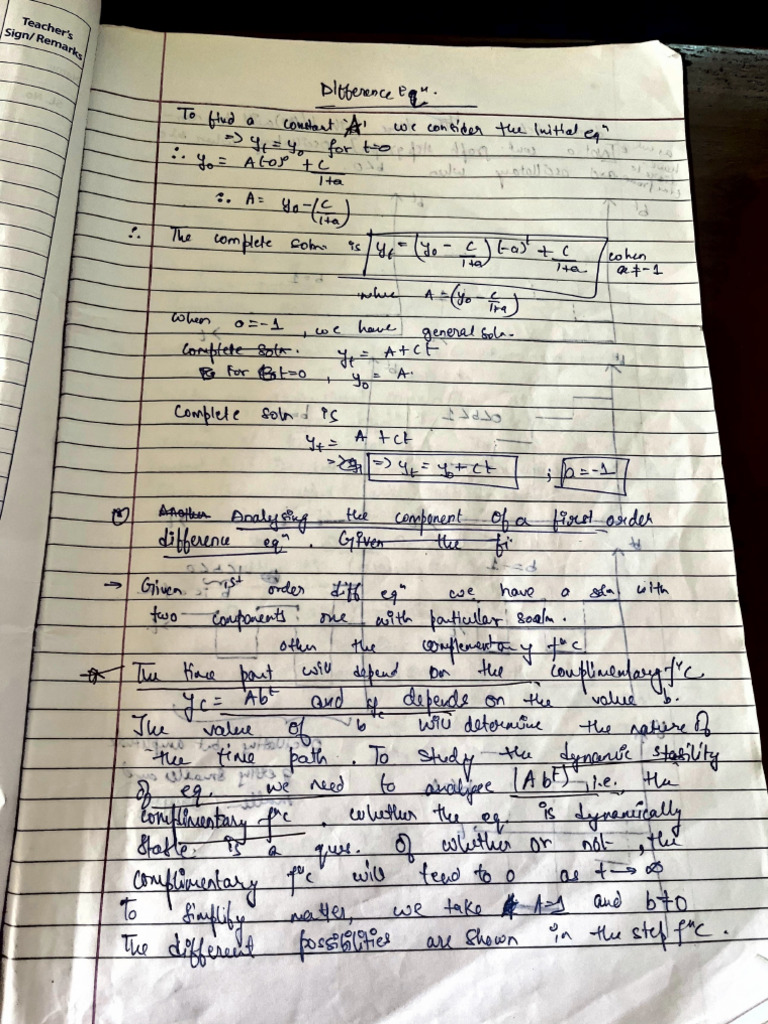 Teacher's
Sign/Remarks
Difference Eqⁿ.
To find a constant 'A' we consider the initial eqⁿ
=> yₜ = y₀ for t=0
∴ y₀ = A(-a)⁰ + c/(1+a)
∴ A = y₀ - (c/(1+a))
∴ The complete soln is yₜ = (y₀ - c/(1+a)) (-a)ᵗ + c/(1+a) when a ≠ -1
where A = (y₀ - c/(1+a))
when a = -1, we have general soln.
complete soln. yₜ = A + ct
For t=0, y₀ = A.
Complete soln is
yₜ = A + ct
=> yₜ = y₀ + ct ; a = -1
Another Analysing the component of a first order
difference eqⁿ. Given the fi
→ Given 1st order diff eqⁿ we have a soln with
two components one with particular soln.
other the complementary fⁿc
The time part will depend on the complimentary fⁿc
yc = Abᵗ and yc depends on the value b.
The value of b will determine the nature of
the time path. To study the dynamic stability
of eq. we need to analyse (Abᵗ), i.e. the
complimentary fⁿc. whether the eq. is dynamically
stable is a ques. of whether or not, the
complimentary fⁿc will tend to 0 as t → ∞
To simplify matter, we take A=1 and b≠0
The different possibilities are shown in the step fⁿc.